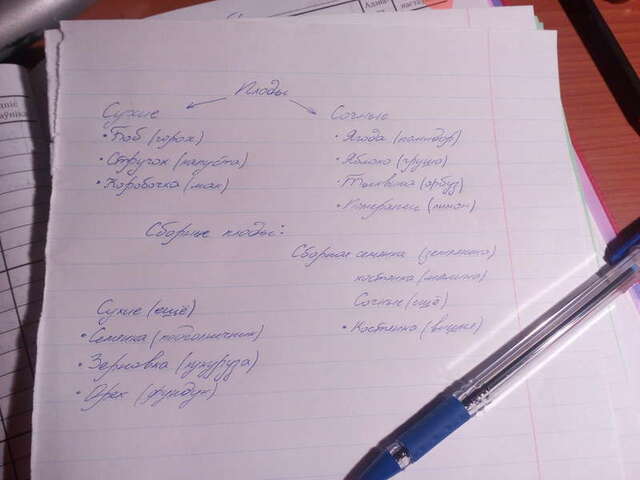 Плоды
Сухие
• Боб (горох)
• Стручок (капуста)
• Коробочка (мак)
Сочные
• Ягода (помидор)
• Яблоко (груша)
• Тыквина (арбуз)
• Померанец (лимон)
Сборные плоды:
Сборная семянка (земляника)
костянка (малина)
Сухие (ещё)
• Семянка (подсолнечник)
• Зерновка (кукуруза)
• Орех (фундук)
Сочные (ещё)
• Костянка (вишня)